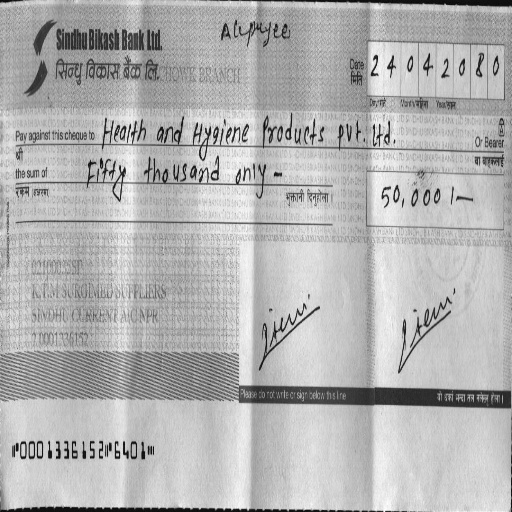 Sindhu Bikash Bank Ltd.
सिन्धु विकास बैंक लि. CHOWK BRANCH
A/c payee
Date मिति 24042080
Day/गते Month/महिना Year/साल
Pay against this cheque to Health and Hygiene Products Pvt. Ltd. Or Bearer
श्री वा वाहकलाई
the sum of Fifty thousand only -
रकम (अक्षरमा) भुक्तानी दिनुहोला।
50,000/-
K.T.M SURGIMED SUPPLIERS
SINDHU CURRENT A/C NPR
20001336152
Please do not write or sign below this line
0001336152 6401